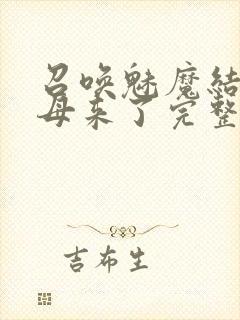 召唤魅魔结
母来了完整
吉布生